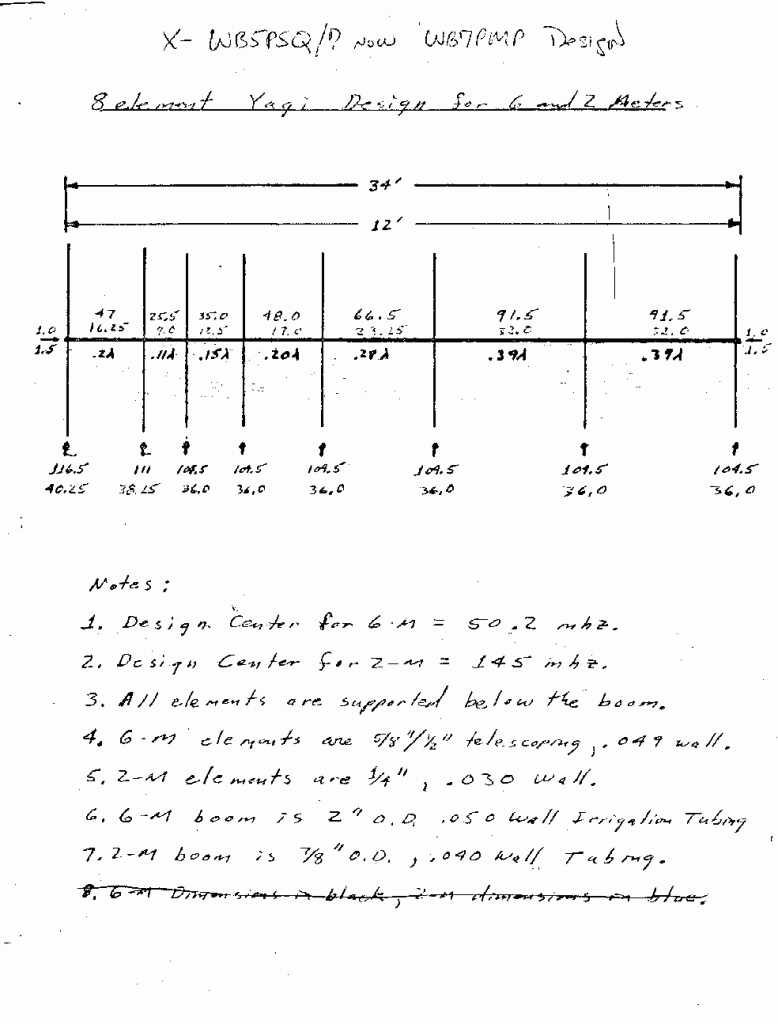 X- WB5PSQ/7 NOW WB7PMP Design
8 element Yagi Design for 6 and 2 Meters
34'
12'
47 25.5 35.0 48.0 66.5 91.5 91.5
1.0 16.25 9.0 12.5 17.0 23.25 32.0 32.0 1.0
1.5 .2λ .11λ .15λ .20λ .28λ .39λ .39λ 1.5
116.5 111 109.5 109.5 109.5 109.5 109.5
40.25 38.25 36.0 36.0 36.0 36.0 36.0 36.0
Notes:
1. Design Center for 6-M = 50.2 mhz.
2. Design Center for 2-M = 145 mhz.
3. All elements are supported below the boom.
4. 6-M elements are 5/8"/1/2" telescoping, .049 wall.
5. 2-M elements are 1/4", .030 wall.
6. 6-M boom is 2" O.D. .050 wall Irrigation Tubing
7. 2-M boom is 7/8" O.D., .040 wall Tubing.
8. 6-M Dimensions in black, 2-M dimensions in blue.